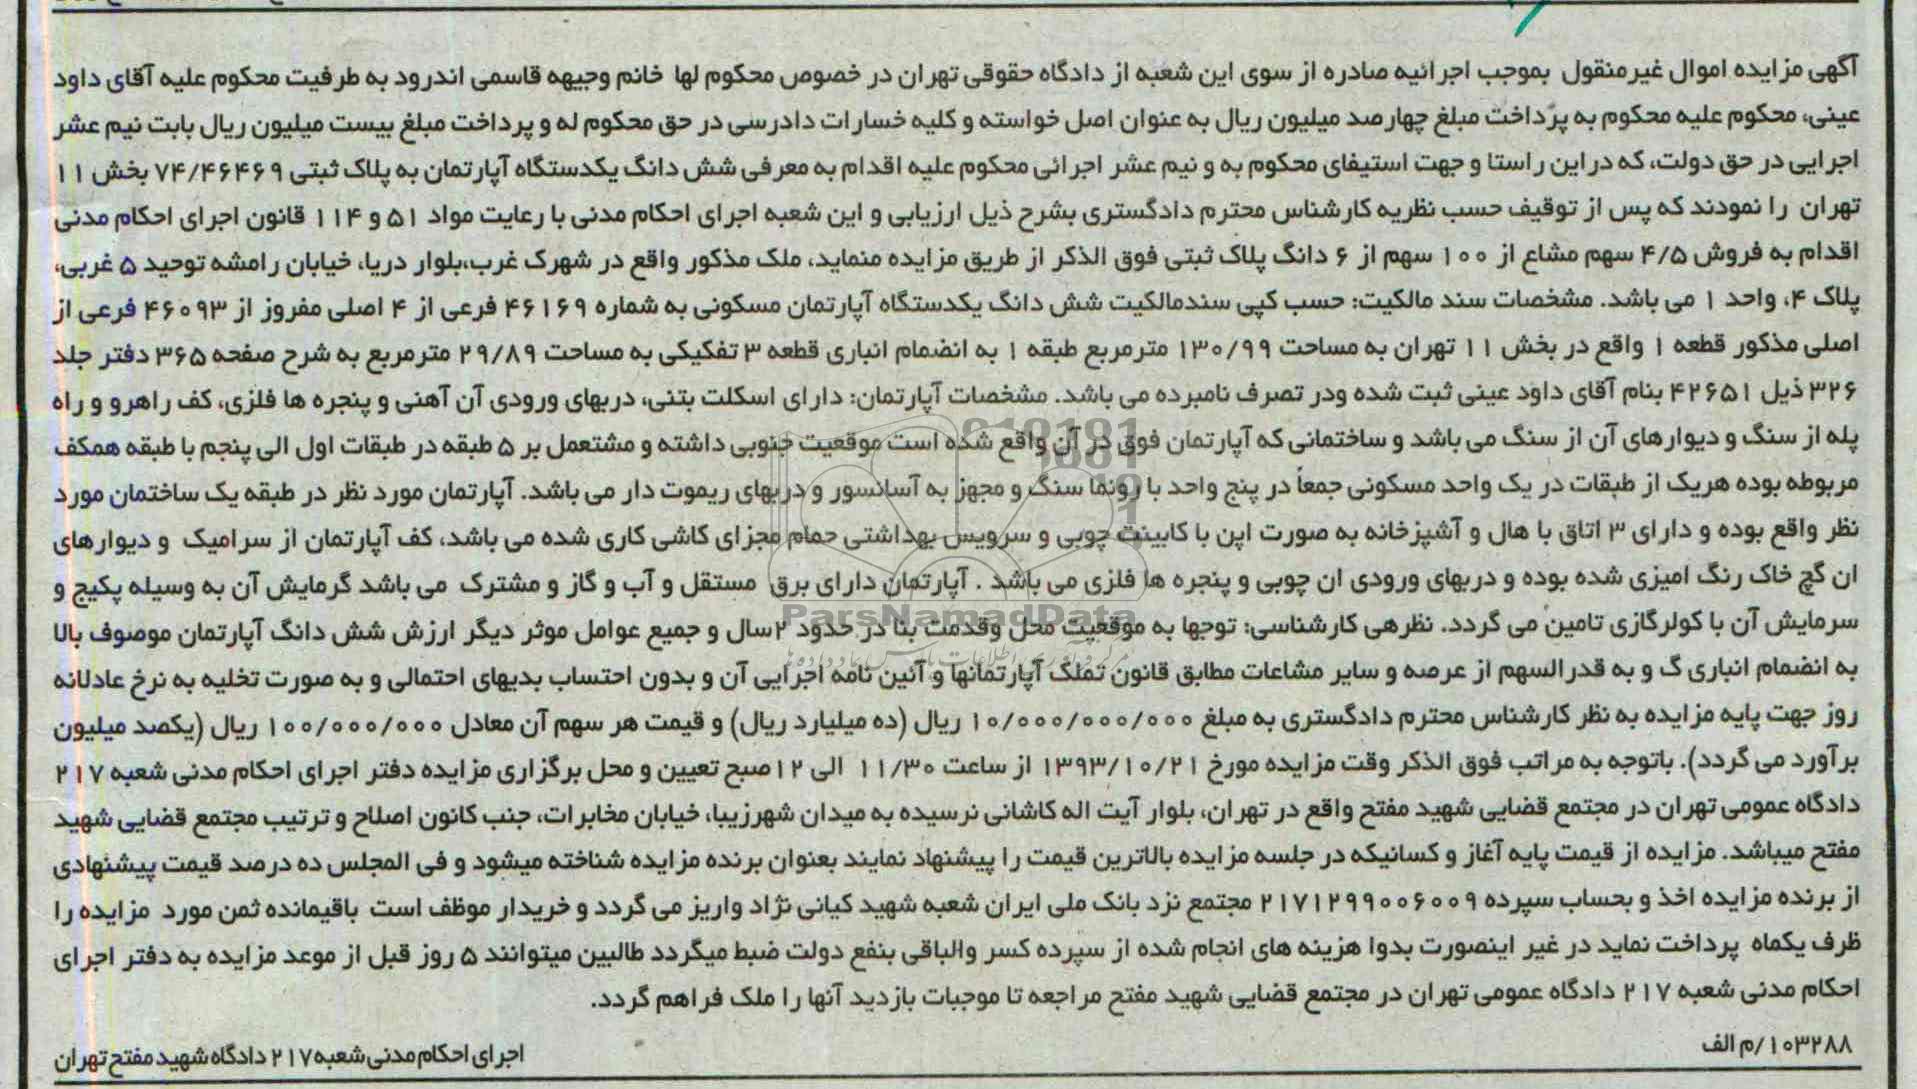 آگهی مزایده اموال غیرمنقول بموجب اجرائیه صادره از سوی این شعبه از دادگاه حقوقی تهران در خصوص محکوم لها خانم وجیهه قاسمی اندرود به طرفیت محکوم علیه آقای داود
عینی، محکوم علیه محکوم به پرداخت مبلغ چهارصد میلیون ریال به عنوان اصل خواسته و کلیه خسارات دادرسی در حق محکوم له و پرداخت مبلغ بیست میلیون ریال بابت نیم عشر
اجرایی در حق دولت، که دراین راستا و جهت استیفای محکوم به و نیم عشر اجرائی محکوم علیه اقدام به معرفی شش دانگ یکدستگاه آپارتمان به پلاک ثبتی ۷۴/۴۶۴۶۹ بخش ۱۱
تهران را نمودند که پس از توقیف حسب نظریه کارشناس محترم دادگستری بشرح ذیل ارزیابی و این شعبه اجرای احکام مدنی با رعایت مواد ۵۱ و ۱۱۴ قانون اجرای احکام مدنی
اقدام به فروش ۴/۵ سهم مشاع از ۱۰۰ سهم از ۶ دانگ پلاک ثبتی فوق الذکر از طریق مزایده منماید، ملک مذکور واقع در شهرک غرب،بلوار دریا، خیابان رامشه توحید ۵ غربی،
پلاک ۴، واحد ۱ می باشد. مشخصات سند مالکیت: حسب کپی سندمالکیت شش دانگ یکدستگاه آپارتمان مسکونی به شماره ۴۶۱۶۹ فرعی از ۴ اصلی مفروز از ۴۶۰۹۳ فرعی از
اصلی مذکور قطعه ۱ واقع در بخش ۱۱ تهران به مساحت ۱۳۰/۹۹ مترمربع طبقه ۱ به انضمام انباری قطعه ۳ تفکیکی به مساحت ۲۹/۸۹ مترمربع به شرح صفحه ۳۶۵ دفتر جلد
۳۲۶ ذیل ۴۲۶۵۱ بنام آقای داود عینی ثبت شده ودر تصرف نامبرده می باشد. مشخصات آپارتمان: دارای اسکلت بتنی، دربهای ورودی آن آهنی و پنجره ها فلزی، کف راهرو و راه
پله از سنگ و دیوارهای آن از سنگ می باشد و ساختمانی که آپارتمان فوق در آن واقع شده است موقعیت جنوبی داشته و مشتمل بر ۵ طبقه در طبقات اول الی پنجم با طبقه همکف
مربوطه بوده هریک از طبقات در یک واحد مسکونی جمعاً در پنج واحد با رونما سنگ و مجهز به آسانسور و دربهای ریموت دار می باشد. آپارتمان مورد نظر در طبقه یک ساختمان مورد
نظر واقع بوده و دارای ۳ اتاق با هال و آشپزخانه به صورت اپن با کابینت چوبی و سرویس بهداشتی حمام مجزای کاشی کاری شده می باشد، کف آپارتمان از سرامیک و دیوارهای
ان گچ خاک رنگ امیزی شده بوده و دربهای ورودی ان چوبی و پنجره ها فلزی می باشد . آپارتمان دارای برق مستقل و آب و گاز و مشترک می باشد گرمایش آن به وسیله پکیج و
سرمایش آن با کولرگازی تامین می گردد. نظرهی کارشناسی: توجها به موقعیت محل وقدمت بنا در حدود ۲سال و جمیع عوامل موثر دیگر ارزش شش دانگ آپارتمان موصوف بالا
به انضمام انباری گ و به قدرالسهم از عرصه و سایر مشاعات مطابق قانون تملک آپارتمانها و آئین نامه اجرایی آن و بدون احتساب بدیهای احتمالی و به صورت تخلیه به نرخ عادلانه
روز جهت پایه مزایده به نظر کارشناس محترم دادگستری به مبلغ ۱۰/۰۰۰/۰۰۰/۰۰۰ ریال (ده میلیارد ریال) و قیمت هر سهم آن معادل ۱۰۰/۰۰۰/۰۰۰ ریال (یکصد میلیون
برآورد می گردد). باتوجه به مراتب فوق الذکر وقت مزایده مورخ ۱۳۹۳/۱۰/۲۱ از ساعت ۱۱/۳۰ الی ۱۲صبح تعیین و محل برگزاری مزایده دفتر اجرای احکام مدنی شعبه ۲۱۷
دادگاه عمومی تهران در مجتمع قضایی شهید مفتح واقع در تهران، بلوار آیت اله کاشانی نرسیده به میدان شهرزیبا، خیابان مخابرات، جنب کانون اصلاح و ترتیب مجتمع قضایی شهید
مفتح میباشد. مزایده از قیمت پایه آغاز و کسانیکه در جلسه مزایده بالاترین قیمت را پیشنهاد نمایند بعنوان برنده مزایده شناخته میشود و فی المجلس ده درصد قیمت پیشنهادی
از برنده مزایده اخذ و بحساب سپرده ۲۱۷۱۲۹۹۰۰۶۰۰۹ مجتمع نزد بانک ملی ایران شعبه شهید کیانی نژاد واریز می گردد و خریدار موظف است باقیمانده ثمن مورد مزایده را
ظرف یکماه پرداخت نماید در غیر اینصورت بدوا هزینه های انجام شده از سپرده کسر والباقی بنفع دولت ضبط میگردد طالبین میتوانند ۵ روز قبل از موعد مزایده به دفتر اجرای
احکام مدنی شعبه ۲۱۷ دادگاه عمومی تهران در مجتمع قضایی شهید مفتح مراجعه تا موجبات بازدید آنها را ملک فراهم گردد.
۱۰۳۲۸۸/م الف
اجرای احکام مدنی شعبه ۲۱۷ دادگاه شهید مفتح تهران
ParsNamadData